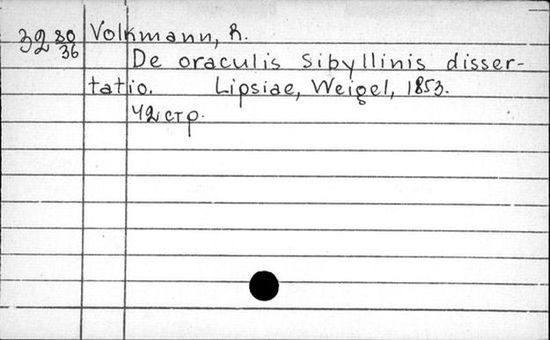 32 80/36 Volkmann, R.
De oraculis Sibyllinis disser-
tatio. Lipsiae, Weigel, 1853.
42 стр.